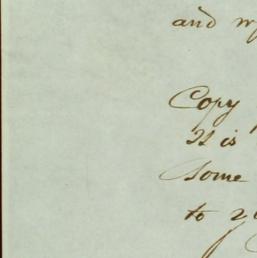 and
Copy
It is
Some
to